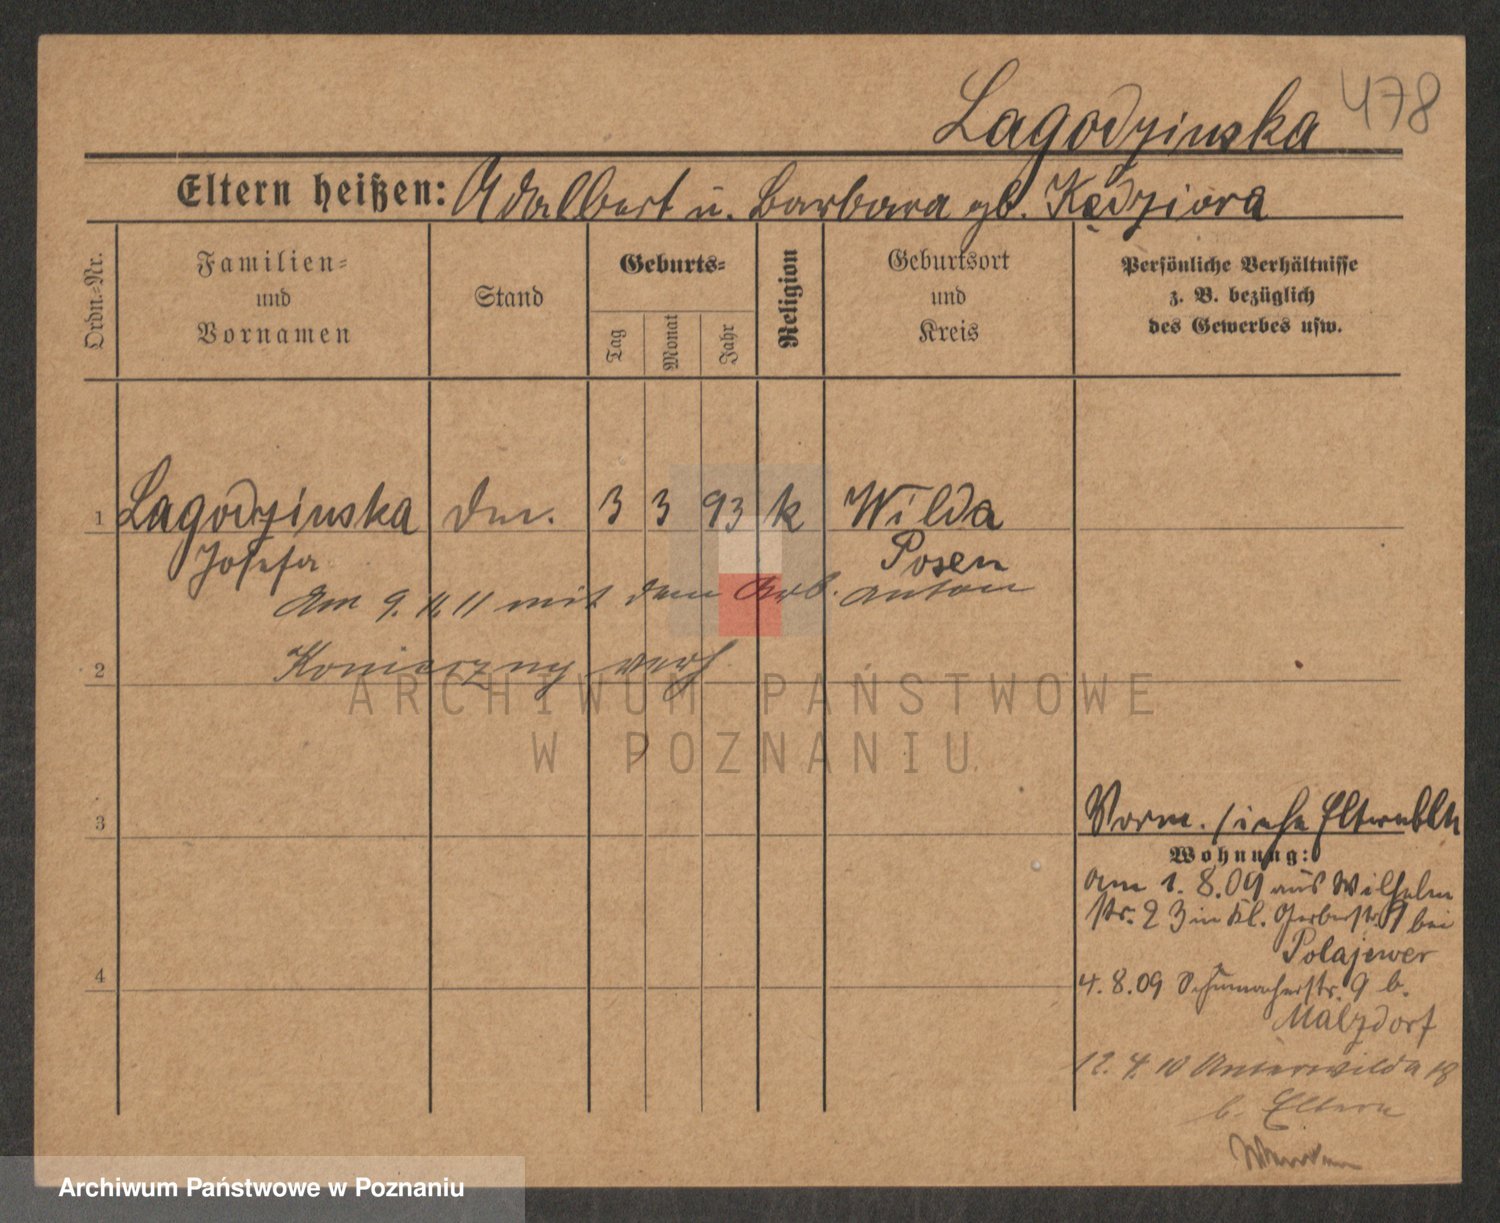 478
Lagodzinska
Eltern heißen: Adalbert u. Barbara gb. Kędziora
Ordn.-Nr.
Familien-
und
Vornamen
Stand
Geburts-
Tag
Monat
Jahr
Religion
Geburtsort
und
Kreis
Persönliche Verhältnisse
z. B. bezüglich
des Gewerbes usw.
1 Lagodzinska 3 3 93 k Wilda
Josefa Posen
Am 9.11.11 mit dem Arb. Anton
2 Konieczny verh
ARCHIWUM PAŃSTWOWE
W POZNANIU
3 Vorm. siehe Elternbltt
Wohnung:
am 1.8.09 aus Wilhelm
str. 23 in Kl. Gerberstr. 9 bei
Polajewer
4 4.8.09 Schumacherstr. 9 b.
Malzdorf
12.4.10 Unterwilda 18
b. Eltern
Archiwum Państwowe w Poznaniu